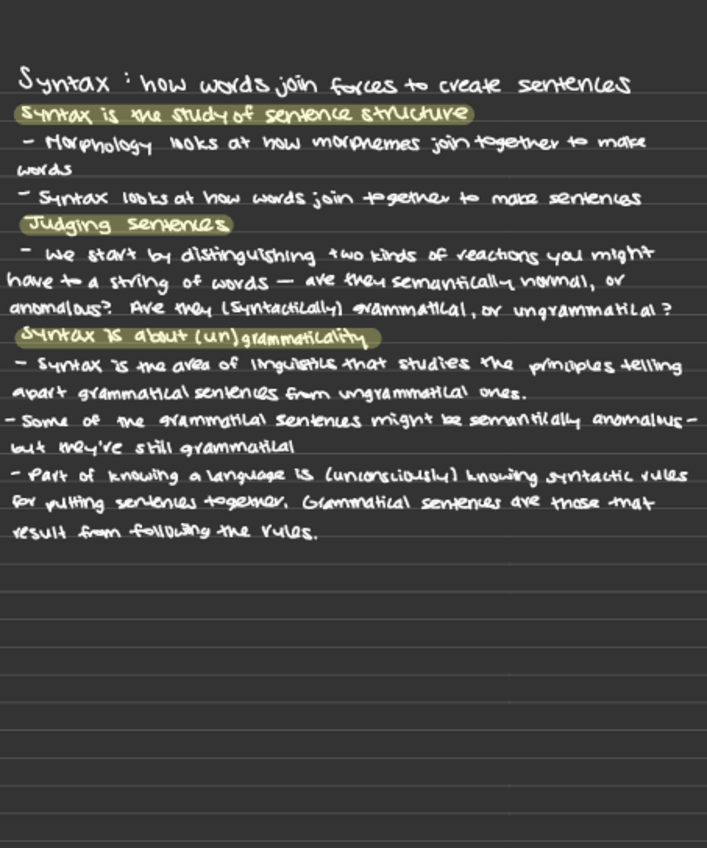 Syntax : how words join forces to create sentences
Syntax is the study of sentence structure
- Morphology looks at how morphemes join together to make
words
- Syntax looks at how words join together to make sentences
Judging sentences
- we start by distinguishing two kinds of reactions you might
have to a string of words — are they semantically normal, or
anomalous? Are they (syntactically) grammatical, or ungrammatical?
Syntax is about (un)grammaticality
- Syntax is the area of linguistics that studies the principles telling
apart grammatical sentences from ungrammatical ones.
- Some of the grammatical sentences might be semantically anomalous -
but they're still grammatical
- Part of knowing a language is (unconsciously) knowing syntactic rules
for putting sentences together. Grammatical sentences are those that
result from following the rules.